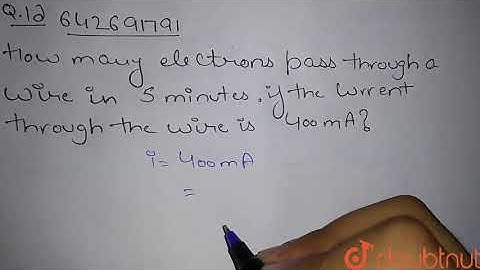 Q.Id 642691791
How many electrons pass through a
wire in 5 minutes, if the current
through the wire is 400 mA?
i = 400 mA
=
doubtnut